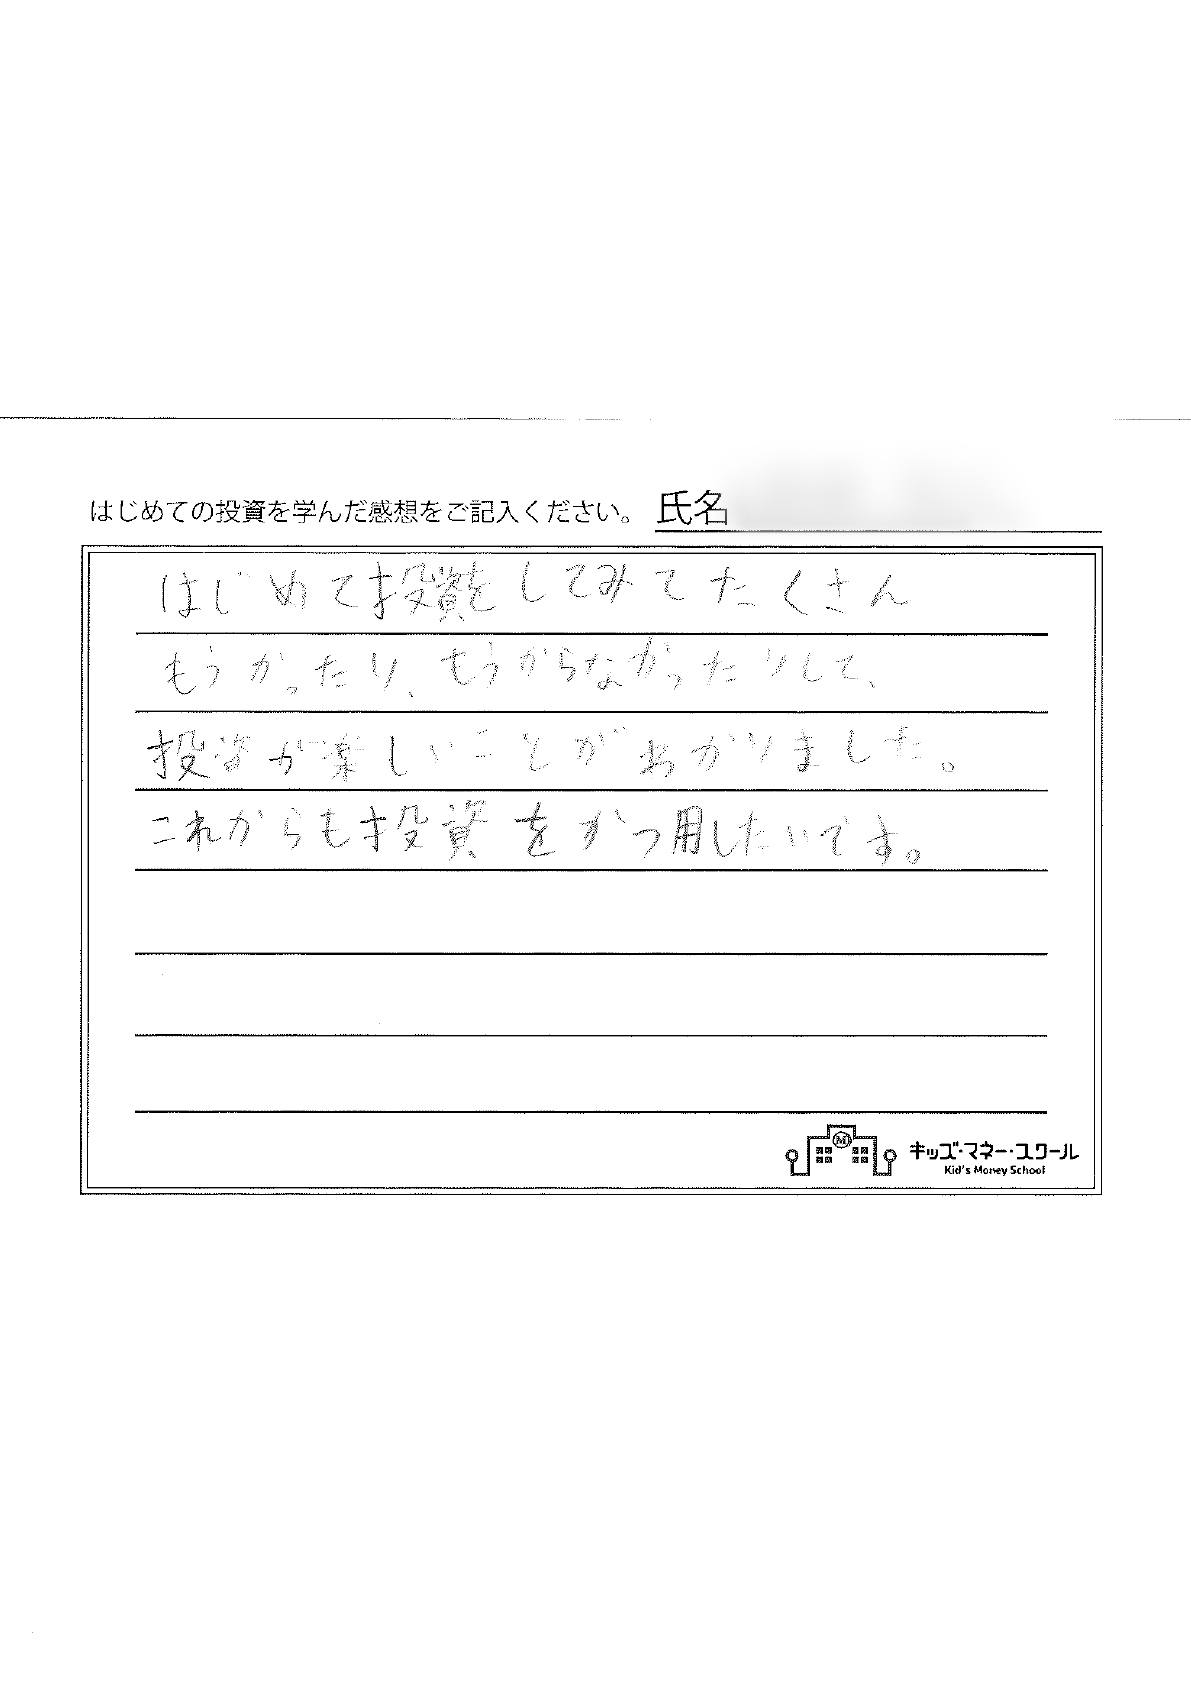 はじめての投資を学んだ感想をご記入ください。 氏名
はじめて投資をしてみてたくさん
もうかったり、もうからなかったりして、
投資が楽しいことがわかりました。
これからも投資をかつ用したいです。
M
キッズ・マネー・スクール
Kid's Money School